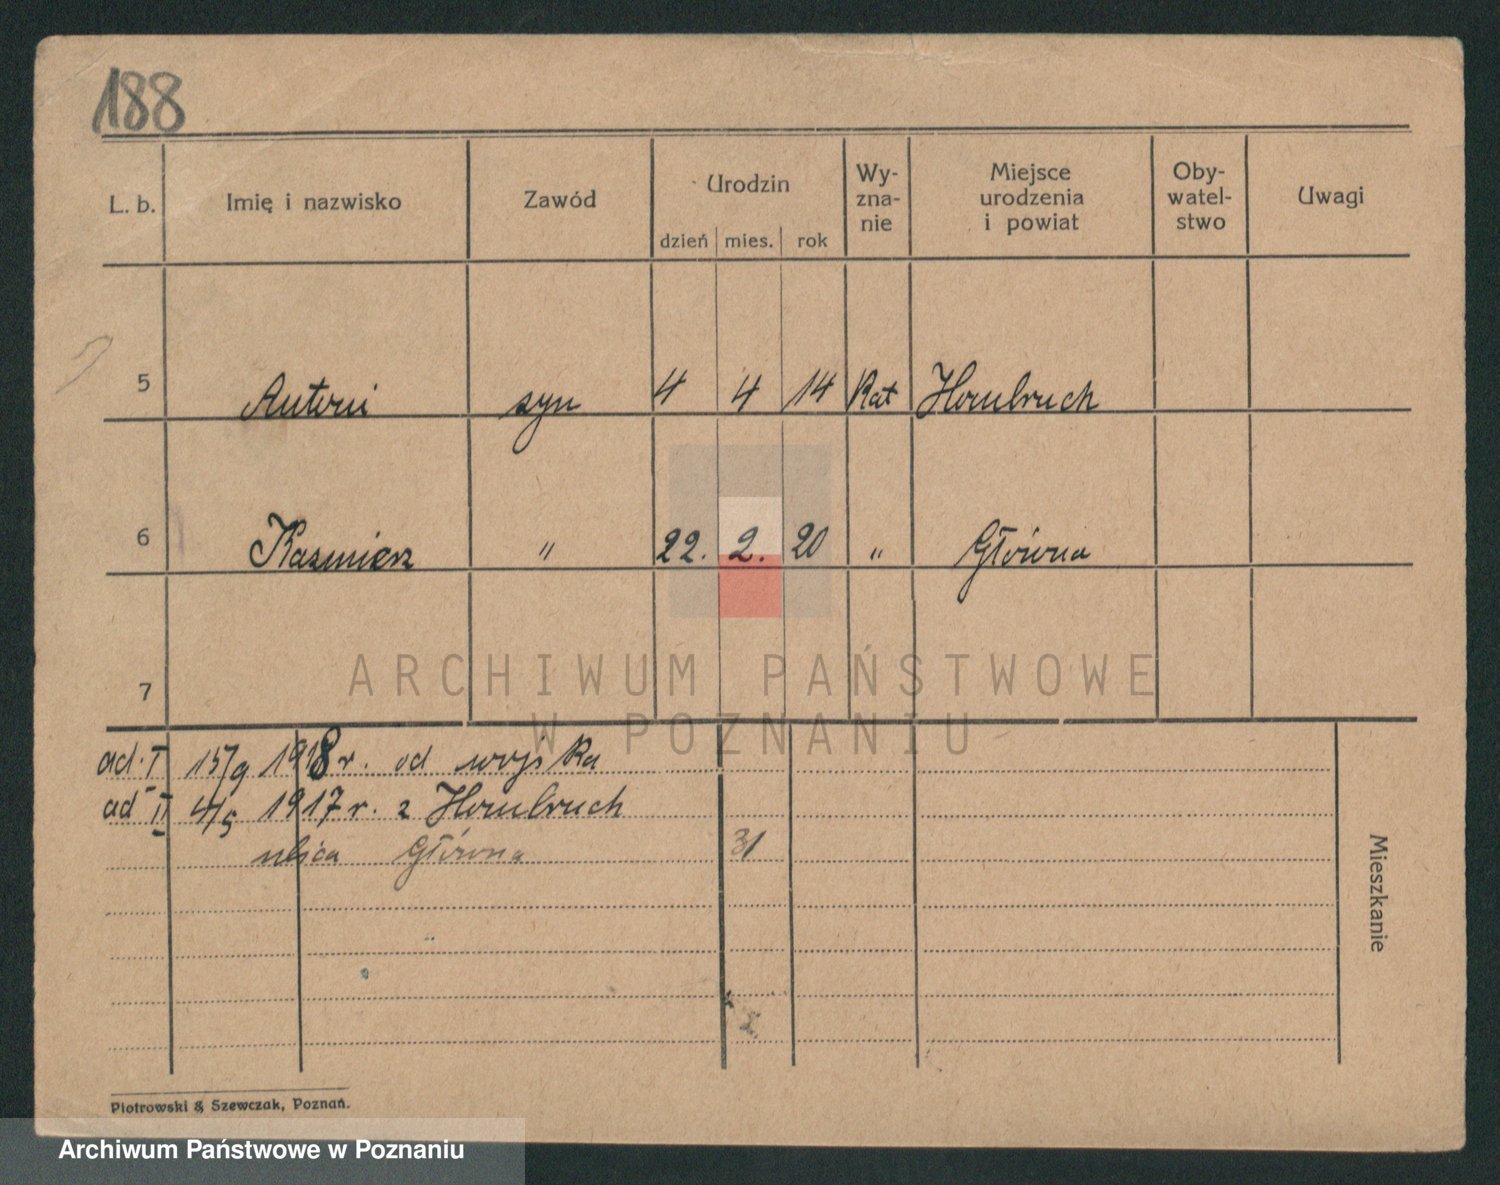 188
L. b. Imię i nazwisko Zawód Urodzin Wy-zna-nie Miejsce urodzenia i powiat Oby-watel-stwo Uwagi
dzień mies. rok
5 Antoni syn 4 4 14 Kat Hombruch
6 Kazmierz " 22. 2. 20 " Główna
7
ARCHIWUM PAŃSTWOWE
W POZNANIU
ad. I 15/9 1918 r. od wojska
ad II 4/5 1917 r. z Hombruch
ulica Główna 31
Mieszkanie
Piotrowski & Szewczak, Poznań.
Archiwum Państwowe w Poznaniu